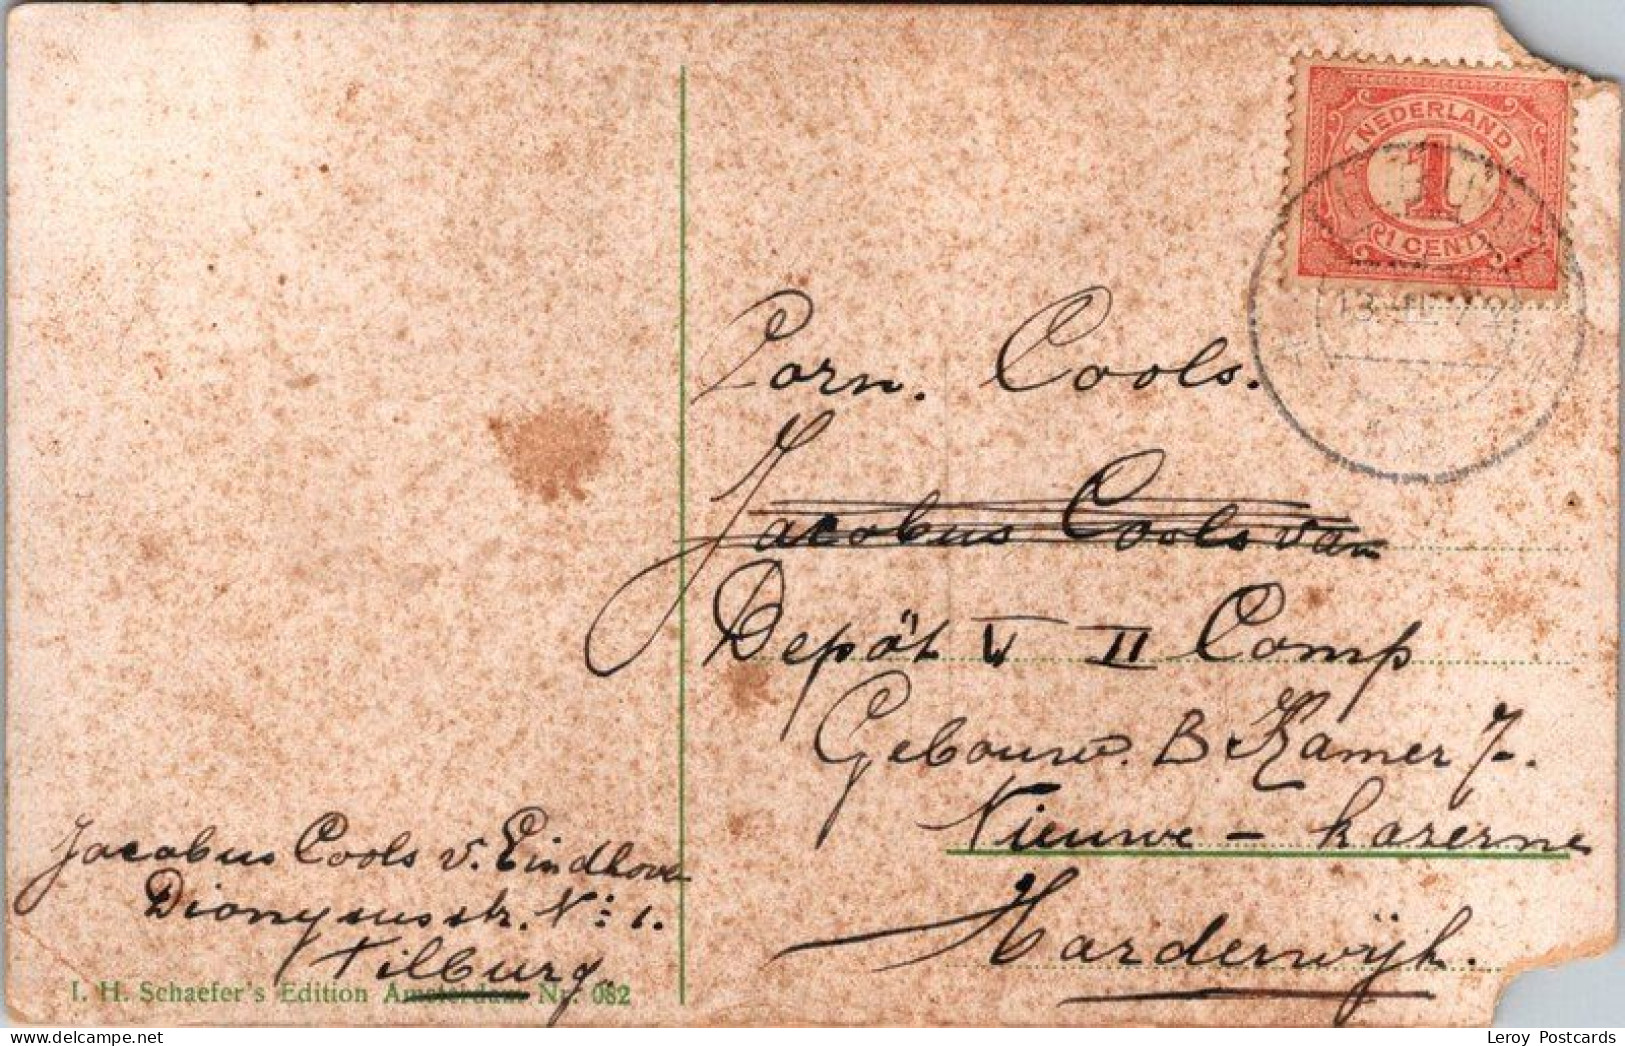 NEDERLAND
1
1 CENT
Corn. Cools.
Jacobus Cools van
Depôt V II Comp
Gebouw. B Kamer 7.
Nieuwe - kazerne
Harderwijk.
Jacobus Cools v. Eindhoven
Dionysusstr. No: 1.
Tilburg.
I. H. Schaefer's Edition Amsterdam Nr. 082
Leroy Postcards